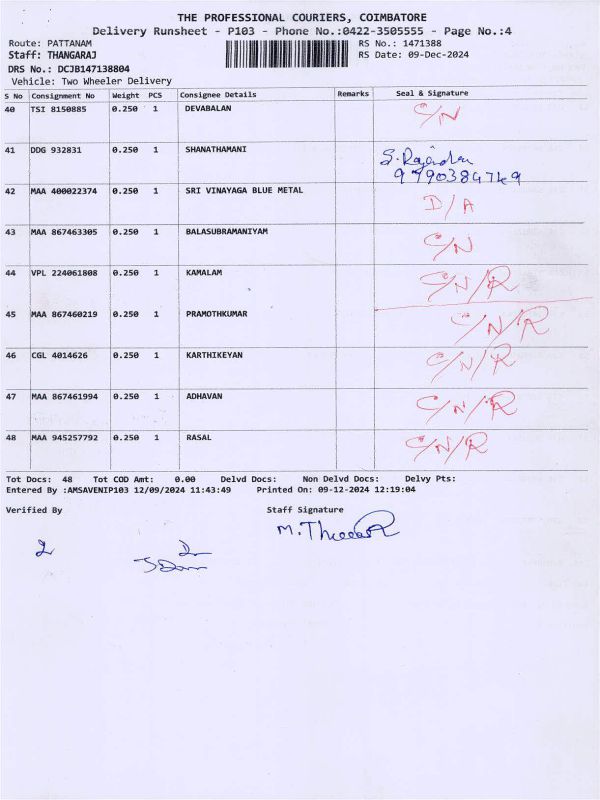 THE PROFESSIONAL COURIERS, COIMBATORE
Delivery Runsheet - P103 - Phone No.:0422-3505555 - Page No.:4
Route: PATTANAM RS No.: 1471388
Staff: THANGARAJ RS Date: 09-Dec-2024
DRS No.: DCJB147138804
Vehicle: Two Wheeler Delivery
S No Consignment No Weight PCS Consignee Details Remarks Seal & Signature
40 TSI 8150885 0.250 1 DEVABALAN C/N
41 DDG 932831 0.250 1 SHANATHAMANI
42 MAA 400022374 0.250 1 SRI VINAYAGA BLUE METAL D/A
43 MAA 867463305 0.250 1 BALASUBRAMANIYAM C/N
44 VPL 224061808 0.250 1 KAMALAM C/N/R
45 MAA 867460219 0.250 1 PRAMOTHKUMAR C/N/R
46 CGL 4014626 0.250 1 KARTHIKEYAN C/N/R
47 MAA 867461994 0.250 1 ADHAVAN C/N/R
48 MAA 945257792 0.250 1 RASAL C/N/R
Tot Docs: 48 Tot COD Amt: 0.00 Delvd Docs: Non Delvd Docs: Delvy Pts:
Entered By :AMSAVENIP103 12/09/2024 11:43:49 Printed On: 09-12-2024 12:19:04
Verified By Staff Signature